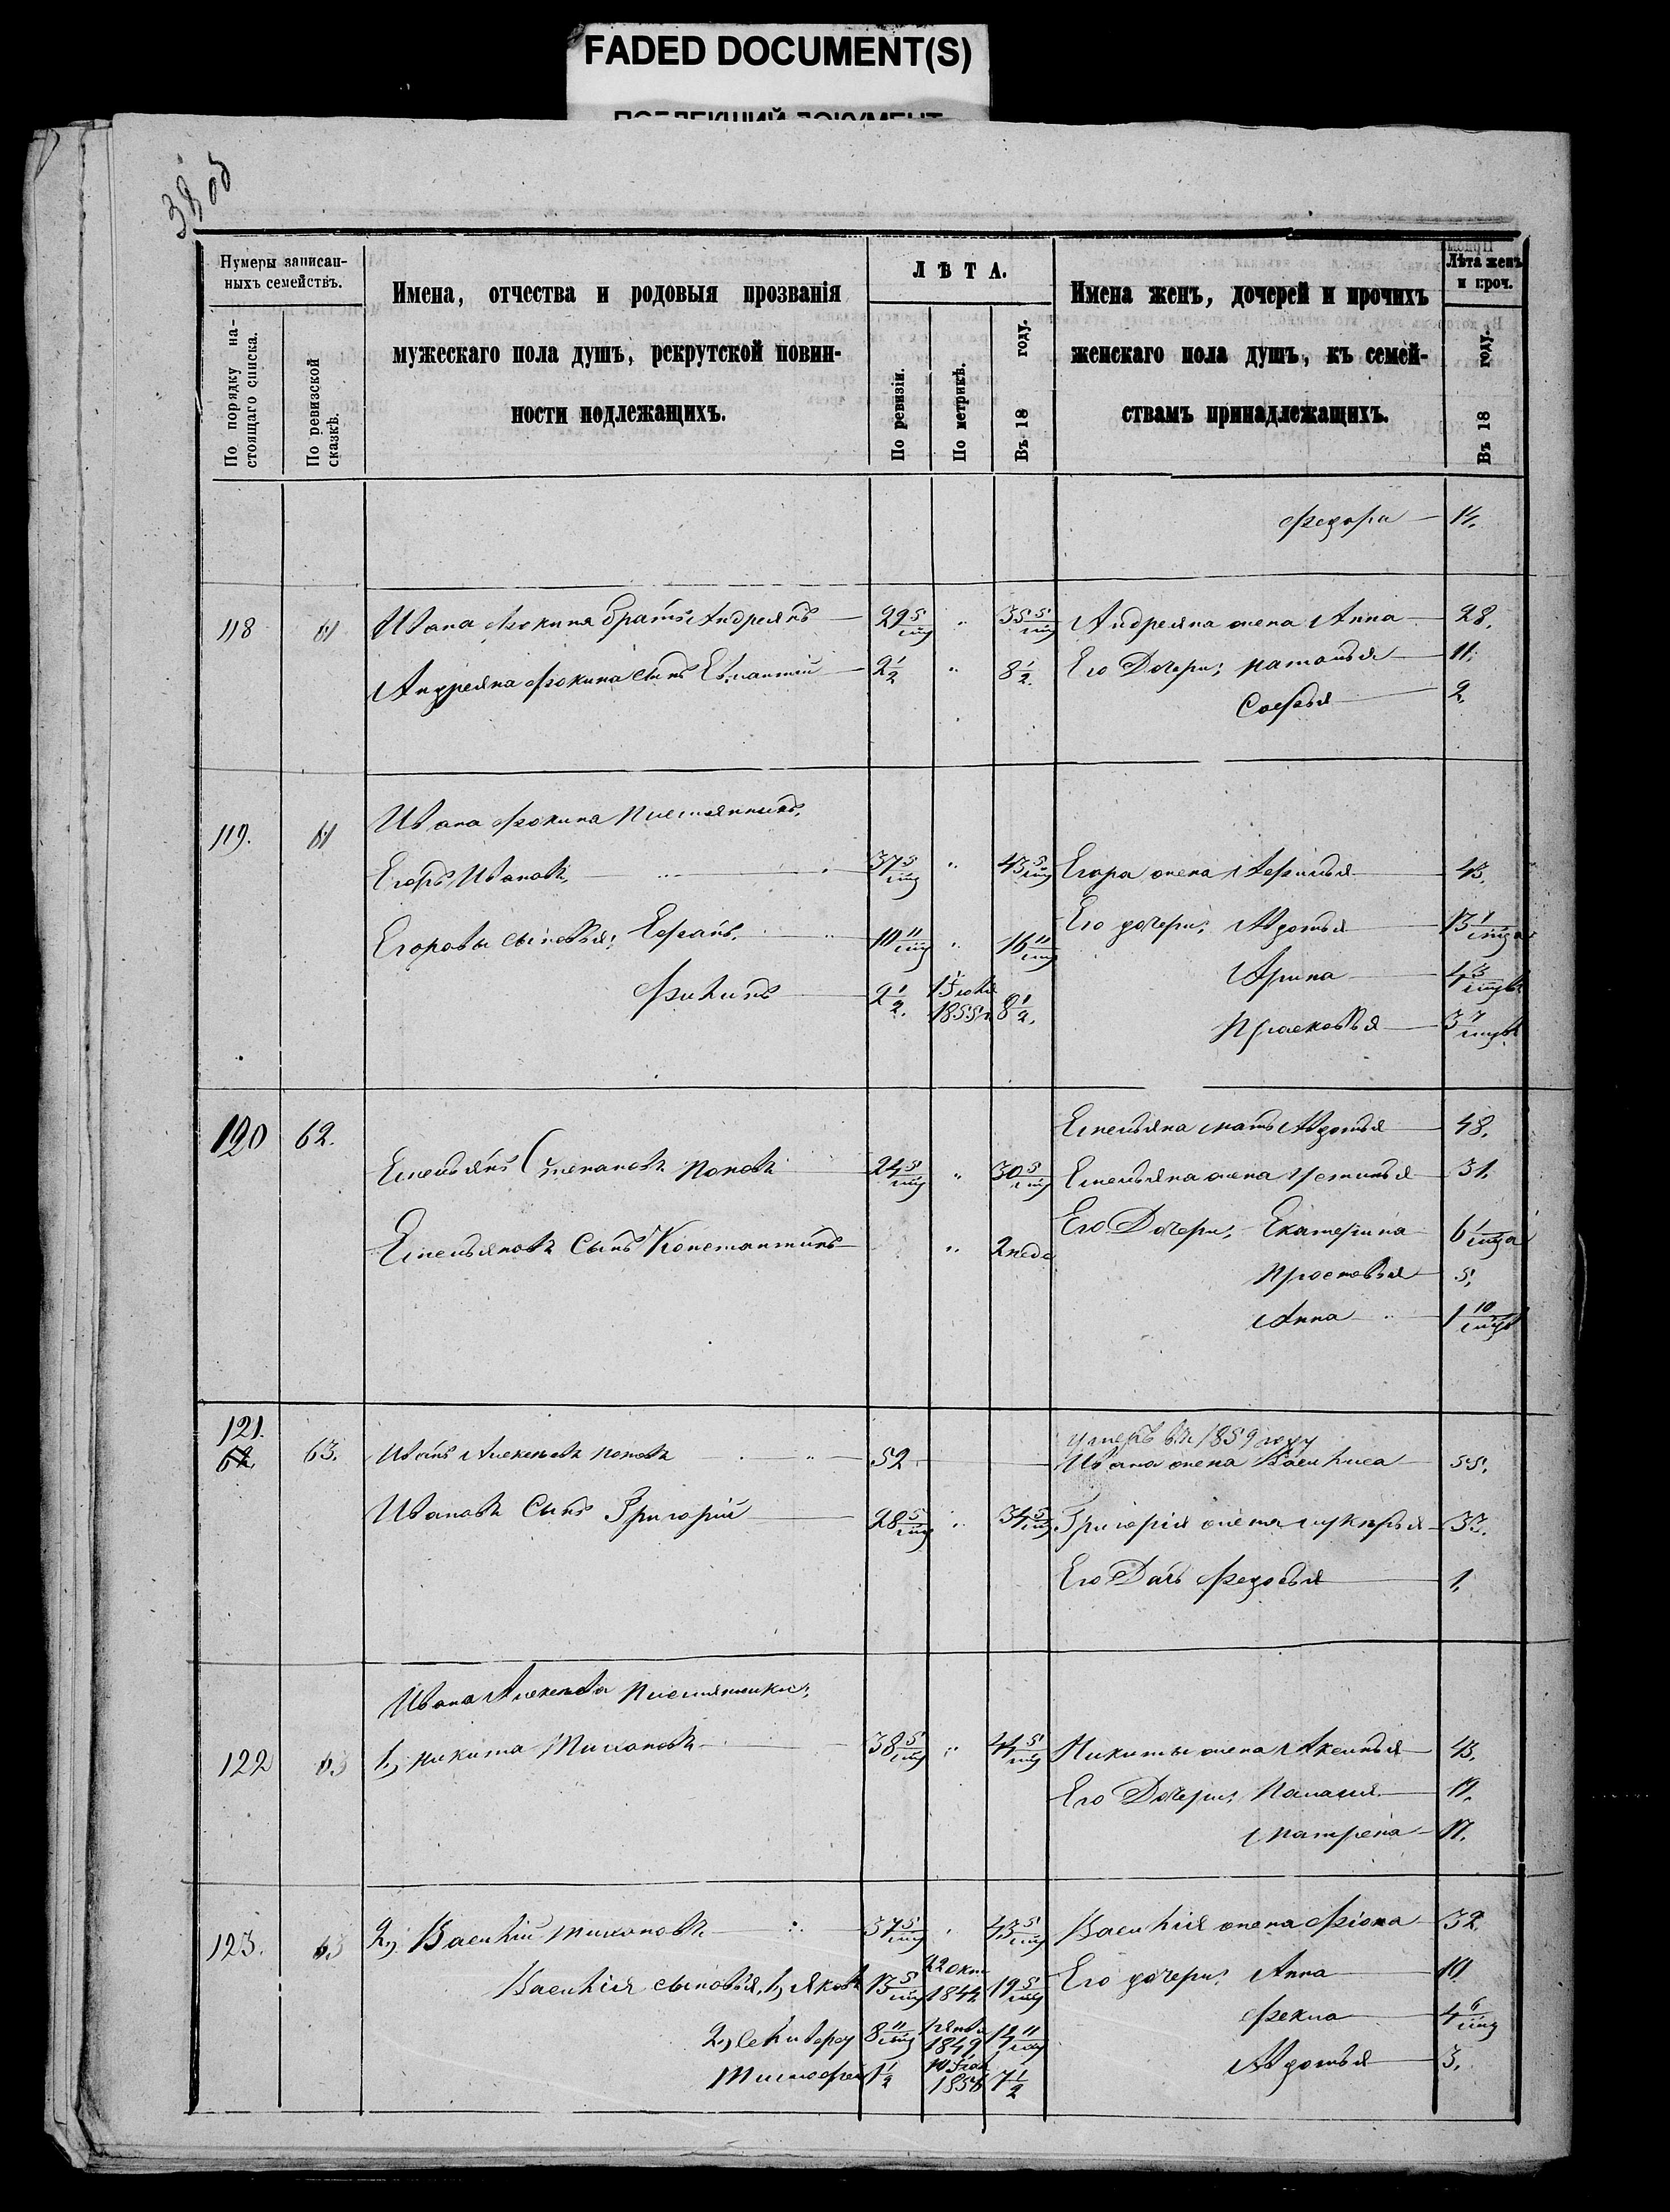 FADED DOCUMENT(S)
38 об
Нумеры записан-
ныхъ семействъ.
По порядку на-
стоящаго списка.
По ревизской
сказкѣ.
Имена, отчества и родовыя прозванія
мужескаго пола душъ, рекрутской повин-
ности подлежащихъ.
ЛѢТА.
По ревизіи.
По метрикѣ.
Въ 18 году.
Имена женъ, дочерей и прочихъ
женскаго пола душъ, къ семей-
ствамъ принадлежащихъ.
Лѣта женъ
и проч.
Въ 18 году.
Федора 14.
118 61 Ивана Фокина братъ Андреянъ 29 5/мѣ " 35 5/мѣ Андреяна жена Анна 28.
Андреяна Фокина сынъ Евлантій 2 1/2 " 8 1/2. Его Дочери; Наталья 11.
Софья 2.
119. 61 Ивана Фокина племянникъ,
Егоръ Ивановъ, 37 5/мѣ " 43 5/мѣ Егора жена Афимья 43.
Егоровы сыновья; Ефимъ. 10 11/мѣ " 16 11/мѣ Его дочери; Авдотья 13 1/мѣца
Арина 4 3/мѣ
2 1/2. 1 Іюля 1855 г 8 1/2. Прасковья 3 7/мѣ
120 62. Емельяна мать Авдотья 48.
Емельянъ Степановъ Поповъ 24 5/мѣ " 30 5/мѣ Емельяна жена Устинья 31.
Емельяновъ Сынъ Константинъ " 2 неде Его Дочери; Екатерина 6 1/мѣца
5.
Анна 1 10/мѣ
121.
62. 63. Иванъ Алексѣевъ Поповъ 52 умеръ въ 1859 году
Ивана жена Василиса 55.
Ивановъ Сынъ Григорій 28 5/мѣ " 34 5/мѣ Григорія жена Лукерья 33.
Его Дочь Федосья 1.
Ивана Алексѣева племянники;
122 63 1, Никита Тихоновъ 38 5/мѣ " 44 5/мѣ Никиты жена Аксинья 43.
Его Дочери; Палагея 19.
Матрена 17.
123. 63 2, Василій Тихоновъ 37 5/мѣ " 43 5/мѣ Василія жена Фіона 32
Василія сыновья, 1, Яковъ 13 5/мѣ 22 окт 1844 19 5/мѣ Его дочери; Анна 10
2, Селиверс 8 11/мѣ 1849 14 11/мѣ Фекла 4 6/мѣ
Тимофей 1 1/2 1856 7 1/2 Авдотья 3.